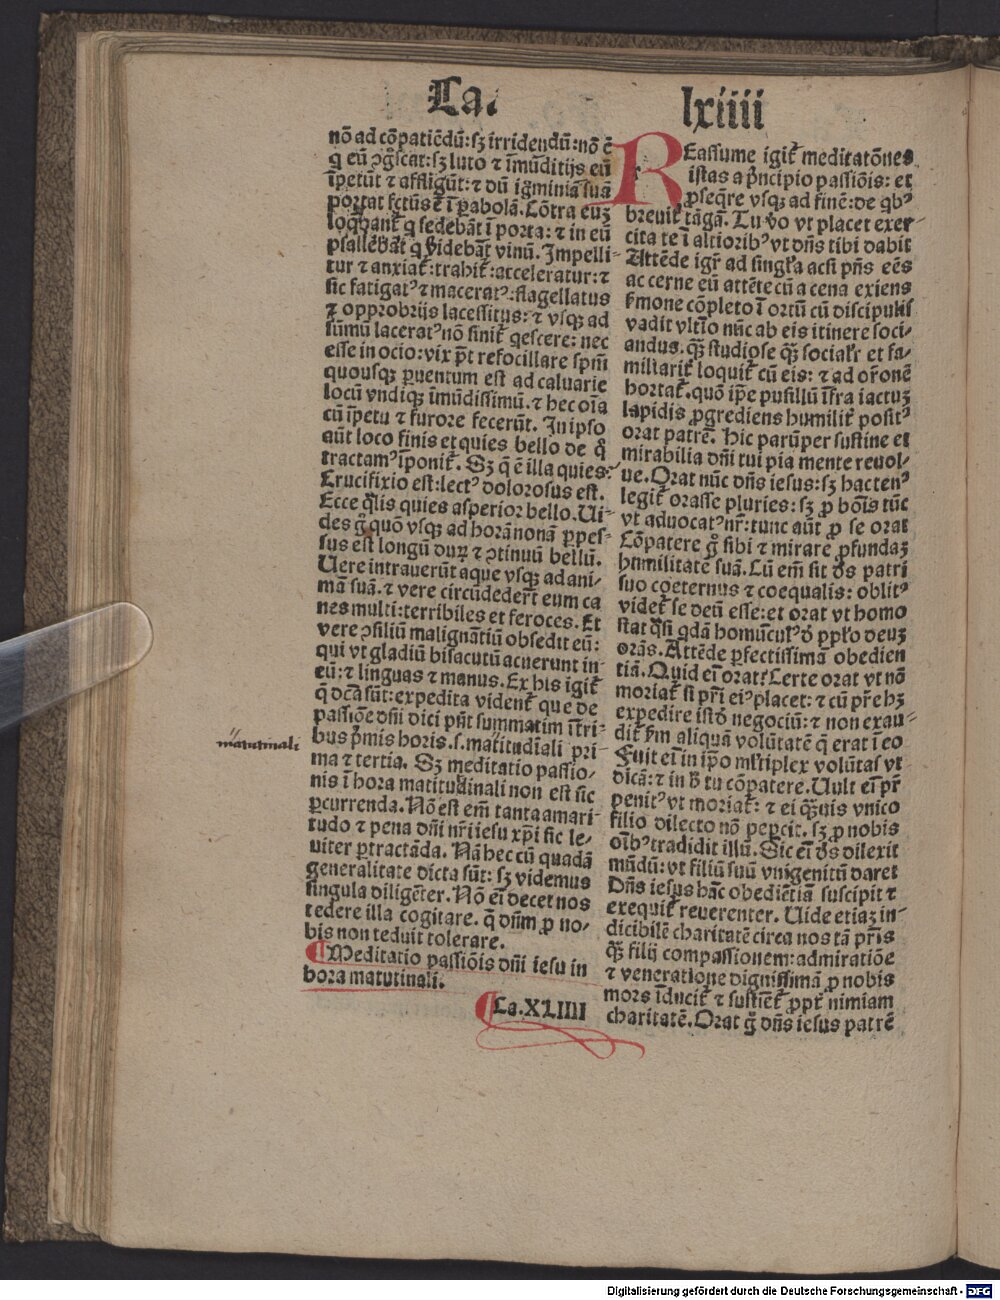 Ca.
lxiiii
nō ad cōpatiēdū: sꝫ irridendū: nō ē
q eū ɔgͦscat: sꝫ luto ⁊ īmūditijs eū
īpetūt ⁊ affligūt: ⁊ dū igͦminiā suā
portat fctūs ē ī ꝑabolā. Cōtra euꝫ
loqͣbant᷑ q sedebāt ī porta: ⁊ in eū
psallebāt q bidebāt vinū. Impelli-
tur ⁊ anxiat᷑: trahit᷑: acceleratur: ⁊
sic fatigatꝰ ⁊ maceratꝰ: flagellatus
⁊ opprobrijs lacessitus: ⁊ vsqꝫ ad
sūmū laceratꝰ nō sinit᷑ qescere: nec
esse in ocio: vix pt̄ refocillare spm̄
quousqꝫ ꝑuentum est ad caluarie
locū vndiqꝫ īmūdissimū. ⁊ hec oīa
cū īpetu ⁊ furore fecerūt. In ipso
aūt loco finis et quies bello de qͦ
tractamꝰ īponit᷑. Sꝫ q̄ ē illa quies:
Crucifixio est: lectꝰ dolorosus est.
Ecce qͣlis quies asperior bello. Ui-
des gͦ quō vsqꝫ ad horā nonā ꝑpes-
sus est longū durꝝ ⁊ ɔtinuū bellū.
Uere intrauerūt aque vsqꝫ ad ani-
mā suā. ⁊ vere circūdederūt eum ca
nes multi: terribiles et feroces. Et
vere ɔsiliū malignātiū obsedit eū:
qui vt gladiū bisacutū acuerunt in
eū: ⁊ linguas ⁊ manus. Ex his igit᷑
q̄ dc̄a sūt: expedita vident᷑ que de
passiōe dn̄i dici pn̄t summatim ī tri-
bus pͥmis horis. s. matitudīali pri-
ma ⁊ tertia. Sꝫ meditatio passio-
nis ī hora matitudinali non est sic
ꝑcurrenda. Nō est em̄ tanta amari-
tudo ⁊ pena dn̄i nr̄i iesu xp̄i sic le-
uiter ꝑtractāda. Nā hec cū quadā
generalitate dicta sūt: sꝫ videmus
singula diligēter. Nō eī decet nos
tedere illa cogitare. q̄ dn̄m ꝓ no-
bis non teduit tolerare.
¶ Meditatio passiōis dn̄i iesu in
hora matutinali.
¶ Ca. XLIIII
matutinali
REassume igit᷑ meditatōnes
istas a pͥncipio passiōis: et
ꝓseqͣre vsqꝫ ad finē: de qbꝰ
breuit᷑ tāgā. Tu vͦo vt placet exer-
cita te ī altioribꝰ vt dn̄s tibi dabit
Attēde igr̄ ad singl̄a acsi pn̄s eēs
ac cerne eū attēte cū a cena exiens
sͬmone cōpleto ī ortū cū discipulis
vadit vltīo nūc ab eis itinere soci-
andus. qͣꝫ studiose qͣꝫ socialr̄ et fa-
miliarit᷑ loquit᷑ cū eis: ⁊ ad or̄onē
hortat᷑. quō ip̄e pusillū īfra iactuꝫ
lapidis ꝓgrediens humilit᷑ positꝰ
orat patrē. Hic parūper sustine et
mirabilia dn̄i tui pia mente reuol-
ue. Orat nūc dn̄s iesus: sꝫ hactenꝰ
legit᷑ orasse pluries: sꝫ ꝓ bōis tūc
vt aduocatꝰ nr̄: tunc aūt ꝓ se orat
Cōpatere gͦ sibi ⁊ mirare ꝓfundaꝫ
humilitatē suā. Cū em̄ sit dͤs patri
suo coeternus ⁊ coequalis: oblitꝰ
videt᷑ se deū esse: et orat vt homo
stat qͣsi qdā homūculꝰ d̄ pplo deuꝫ
orās. Attēde ꝑfectissimā obedien
tiā. Quid eī orat? Certe orat vt nō
moriat᷑ si pr̄i eiꝰ placet: ⁊ cū pr̄e hꝫ
expedire istd̄ negociū: ⁊ non exau-
dit᷑ fm̄ aliquā volūtatē q̄ erat ī eo
Fuit eī in ip̄o ml̄tiplex volūtas vt
dicā: ⁊ in h̄ tu cōpatere. Uult eī pr̄
penitꝰ vt moriat᷑: ⁊ ei qͣꝫuis vnico
filio dilecto nō peꝑcit. sꝫ ꝓ nobis
oībꝰ tradidit illū. Sic eī dͤs dilexit
mūdū: vt filiū suū vnigenitū daret
Dn̄s iesus hāc obediētiā suscipit ⁊
exequit᷑ reuerenter. Uide etiaꝫ in-
dicibilē charitatē circa nos tā pr̄is
qͣꝫ filij compassionem: admiratiōe
⁊ veneratione dignissimā ꝓ nobis
mors īducit᷑ ⁊ sustiēt᷑ ꝓpt᷑ nimiam
charitatē. Orat gͦ dn̄s iesus patrē
Digitalisierung gefördert durch die Deutsche Forschungsgemeinschaft - DFG